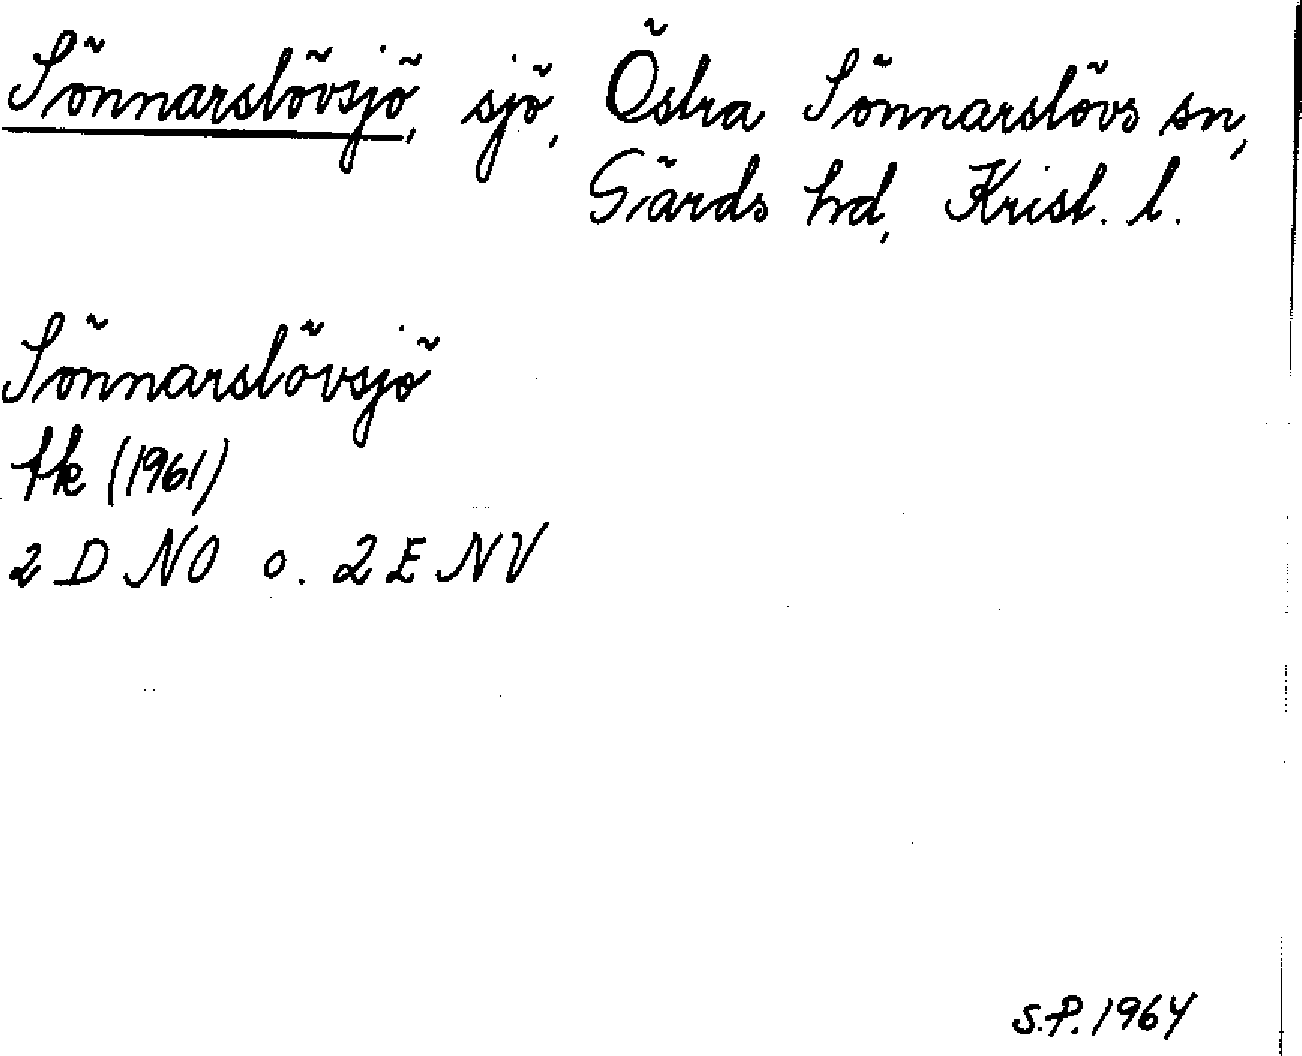 Sönnarslövsjö, sjö, Östra Sönnarslövs sn,
Gärds hd, Krist. l.
Sönnarslövsjö
tk (1961)
2 D NO o. 2 E NV
S.P. 1964